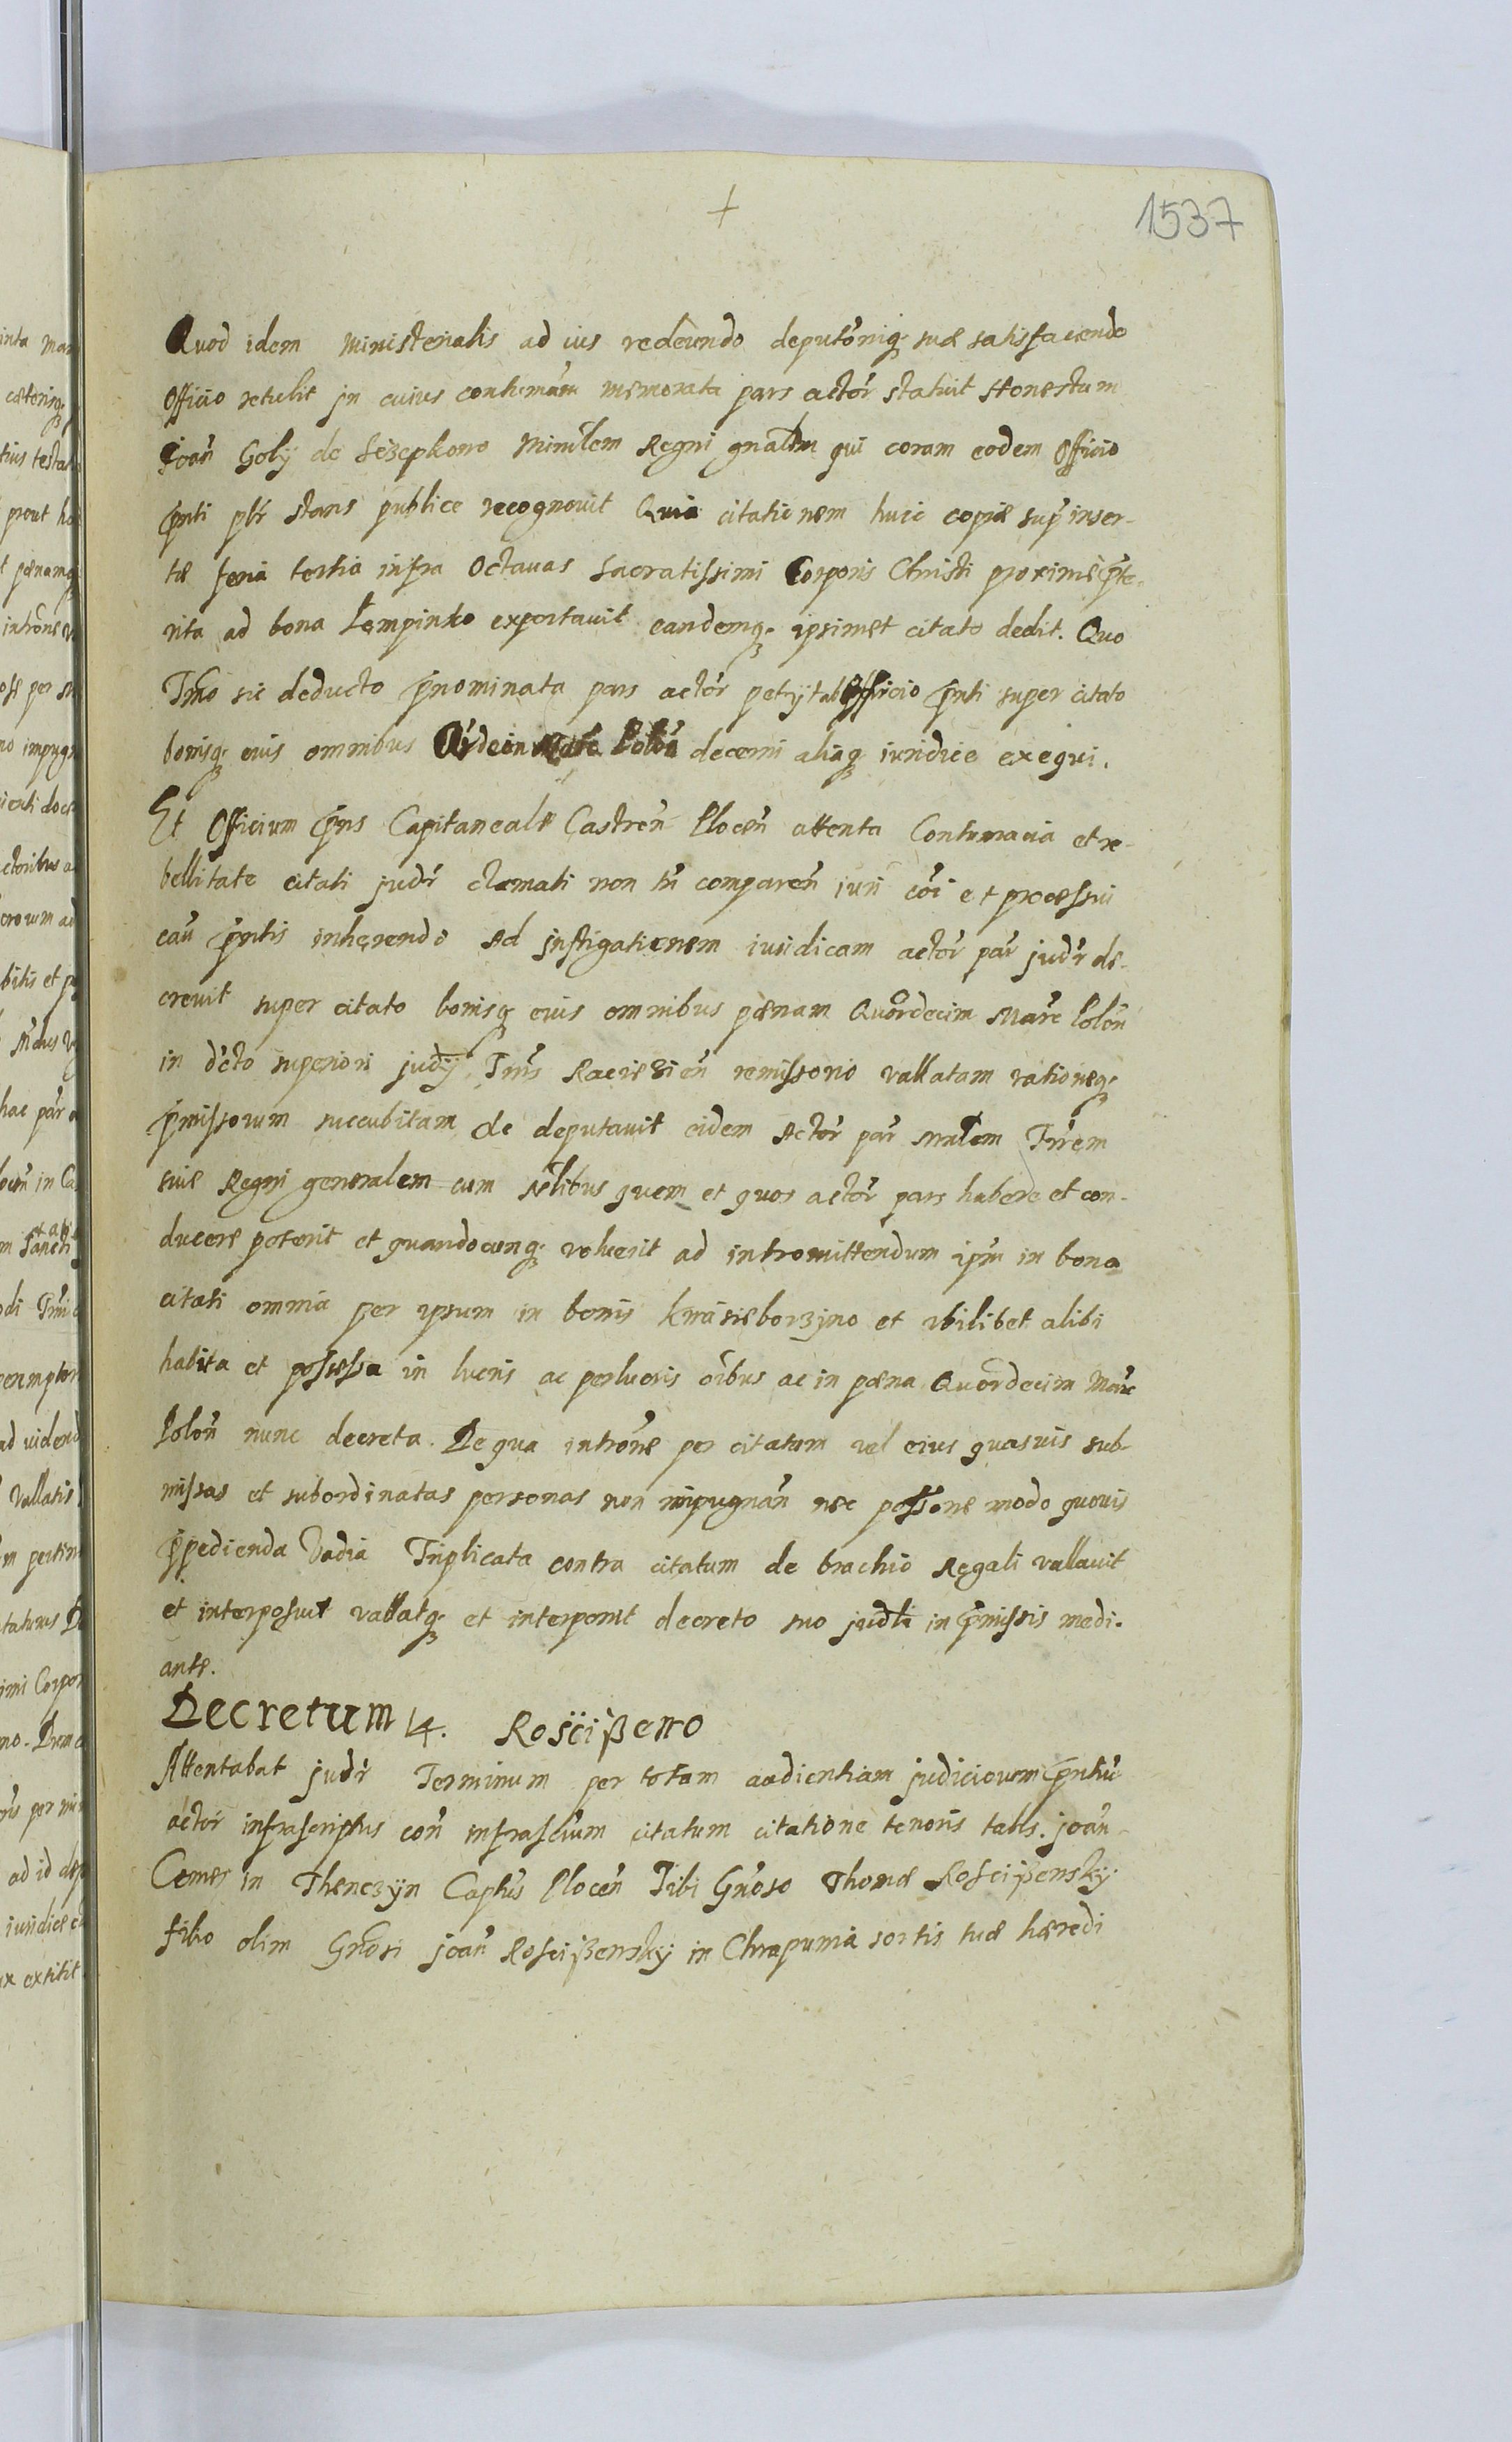 +
1537
Quod idem ministerialis ad ius redeundo deputōniq3 suæ satisfaciendo
Officio retulit jn cuius contumām memorata pars actōr statuit Honestum
Joan̄ Goly de Sczepkowo Minīlem Regni gnalem qui coram eodem Officio
p̄nti pl̄r stans publice recognovit Quia citationem huic copiæ sup̄ inser-
tæ feria tertia infra Octavas Sacratissimi Corporis Christi proximè p̄te-
rita ad bona Łempinko exportavit eandemq3 ipsimet citato dedit. Quo
Tm̄o sic deducto p̄nominata pars actōr petijt ab Officio p̄nti super citato
bonisq3 eius omnibus Polōn decerni aliaq3 iuridice exequi.
Et Officium p̄ns Capitaneale Castren̄ Plocen̄ attenta Contumacia et re-
bellitate citati jud̄r clamati non tn̄ comparen̄ iuri cōi et processui
cau̅ p̄ntis inhęrendo Ad jnstigationem iuridicam actōr par̄ jud̄r de-
crevit super citato bonisq3 eius omnibus pænam Quōrdecim Marc̄ Polōn
in d̄cto superiori judij Tm̄s Raciezien̄ remissorio vallatam rationeq3
p̄missorum succubitam de deputavit eidem Actōr par̄ mīnlem Tr̄rem
sive Regni generalem cum N̄libus quem et quos actōr pars habere et con-
ducere poterit et quandocunq3 voluerit ad intromittendum ip̄m in bona
citati omnia per ipsum in bonis Kwasieborzyno et ubilibet alibi
habita et possessa in lucris ac perlucris ōibus ac in pæna Quōrdecim Marc̄
Polōn nunc decreta. De qua intrōne per citatum vel eius quasvis sub-
missas et subordinatas personas non impugnan̄ nec possōne modo quovis
p̄pedienda Vadia Triplicata contra citatum de brachio Regali vallavit
et interposuit vallatq3 et interponit decreto suo jud̄li in p̄missis medi-
ante.
Decretum 14. Roscißewo
Attentabat jud̄r Terminum per totam audientiam judiciorum p̄ntiū
actōr infrascriptus con̄ infrasc̄tum citatum citatione tenoris talis. Joan̄
Comes in Thenczyn Captūs Plocen̄ Tibi Gn̄oso Thomæ Roscißewsky
filio olim Gn̄osi Joan̄ Roscißewsky in Chrapunia sortis tuæ hæredi